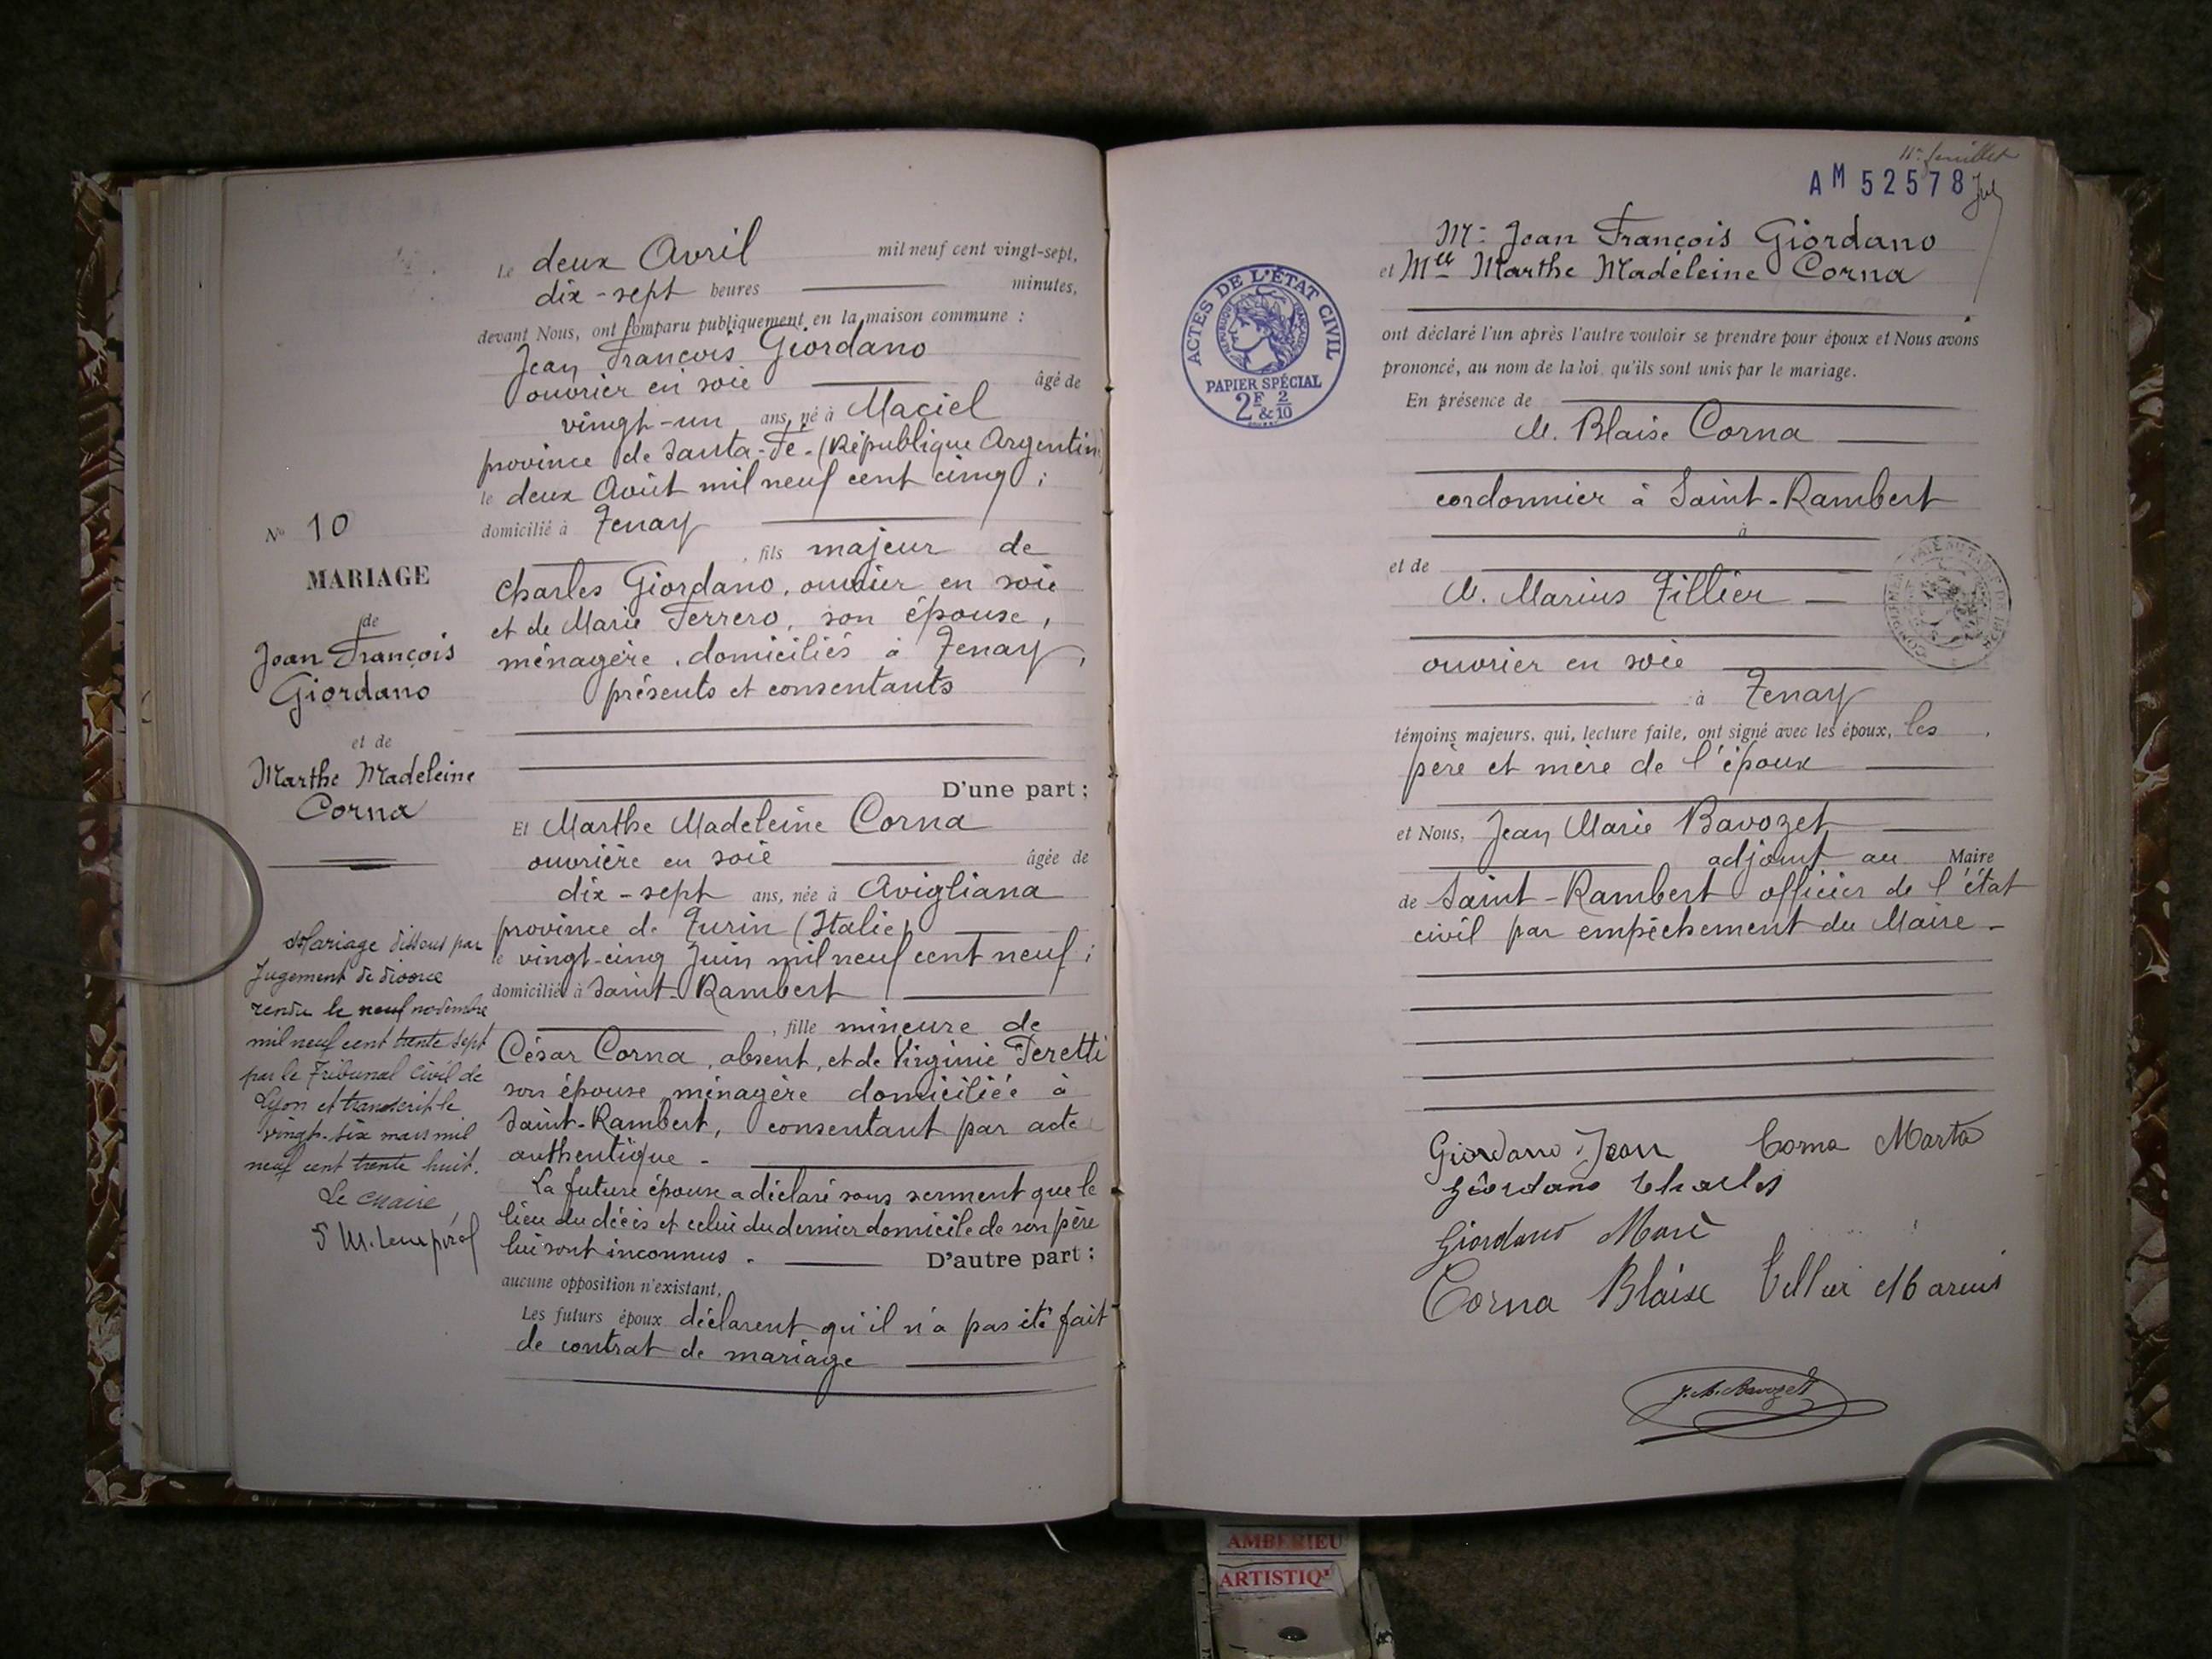 Le deux Avril mil neuf cent vingt-sept,
dix-sept heures minutes,
devant Nous, ont comparu publiquement en la maison commune :
Jean François Giordano
ouvrier en soie âgé de
vingt-un ans, né à Maciel
province de Santa-Fe-(République Argentine)
le deux Août mil neuf cent cinq ;
domicilié à Tenay
, fils majeur de
Charles Giordano, ouvrier en soie
et de Marie Ferrero, son épouse,
ménagère, domiciliés à Tenay,
présents et consentants
D'une part ;
Et Marthe Madeleine Corna
ouvrière en soie âgée de
dix-sept ans, née à Avigliana
province de Turin (Italie)
le vingt-cinq Juin mil neuf cent neuf ;
domiciliée à Saint-Rambert
, fille mineure de
César Corna, absent, et de Virginie Feretti
son épouse ménagère domiciliée à
Saint-Rambert, consentant par acte
authentique -
La future épouse a déclaré sous serment que le
lieu du décès et celui du dernier domicile de son père
lui sont inconnus. D'autre part ;
aucune opposition n'existant,
Les futurs époux déclarent qu'il n'a pas été fait
de contrat de mariage
No 10
MARIAGE
de
Jean François
Giordano
et de
Marthe Madeleine
Corna
Mariage dissous par
Jugement de divorce
rendu le neuf novembre
mil neuf cent trente sept
par le Tribunal Civil de
Lyon et transcrit le
vingt-six mars mil
neuf cent trente huit.
Le Maire,
11e feuillet
AM 52578
Mr Jean François Giordano
et Mlle Marthe Madeleine Corna
ACTES DE L'ÉTAT CIVIL
RÉPUBLIQUE FRANÇAISE
PAPIER SPÉCIAL
2F & 2/10
ont déclaré l'un après l'autre vouloir se prendre pour époux et Nous avons
prononcé, au nom de la loi, qu'ils sont unis par le mariage.
En présence de
M. Blaise Corna
cordonnier à Saint-Rambert
à
et de
M. Marius Tillier
ouvrier en soie
à Tenay
témoins majeurs, qui, lecture faite, ont signé avec les époux, les
père et mère de l'époux
et Nous, Jean Marie Bavozet
adjoint au Maire
de Saint-Rambert officier de l'état
civil par empêchement du Maire -
Giordano Jean Corna Marta
Giordano Charles
Giordano Marie
Corna Blaise Tillier Marius
J. M. Bavozet
AMBERIEU
ARTISTIQ